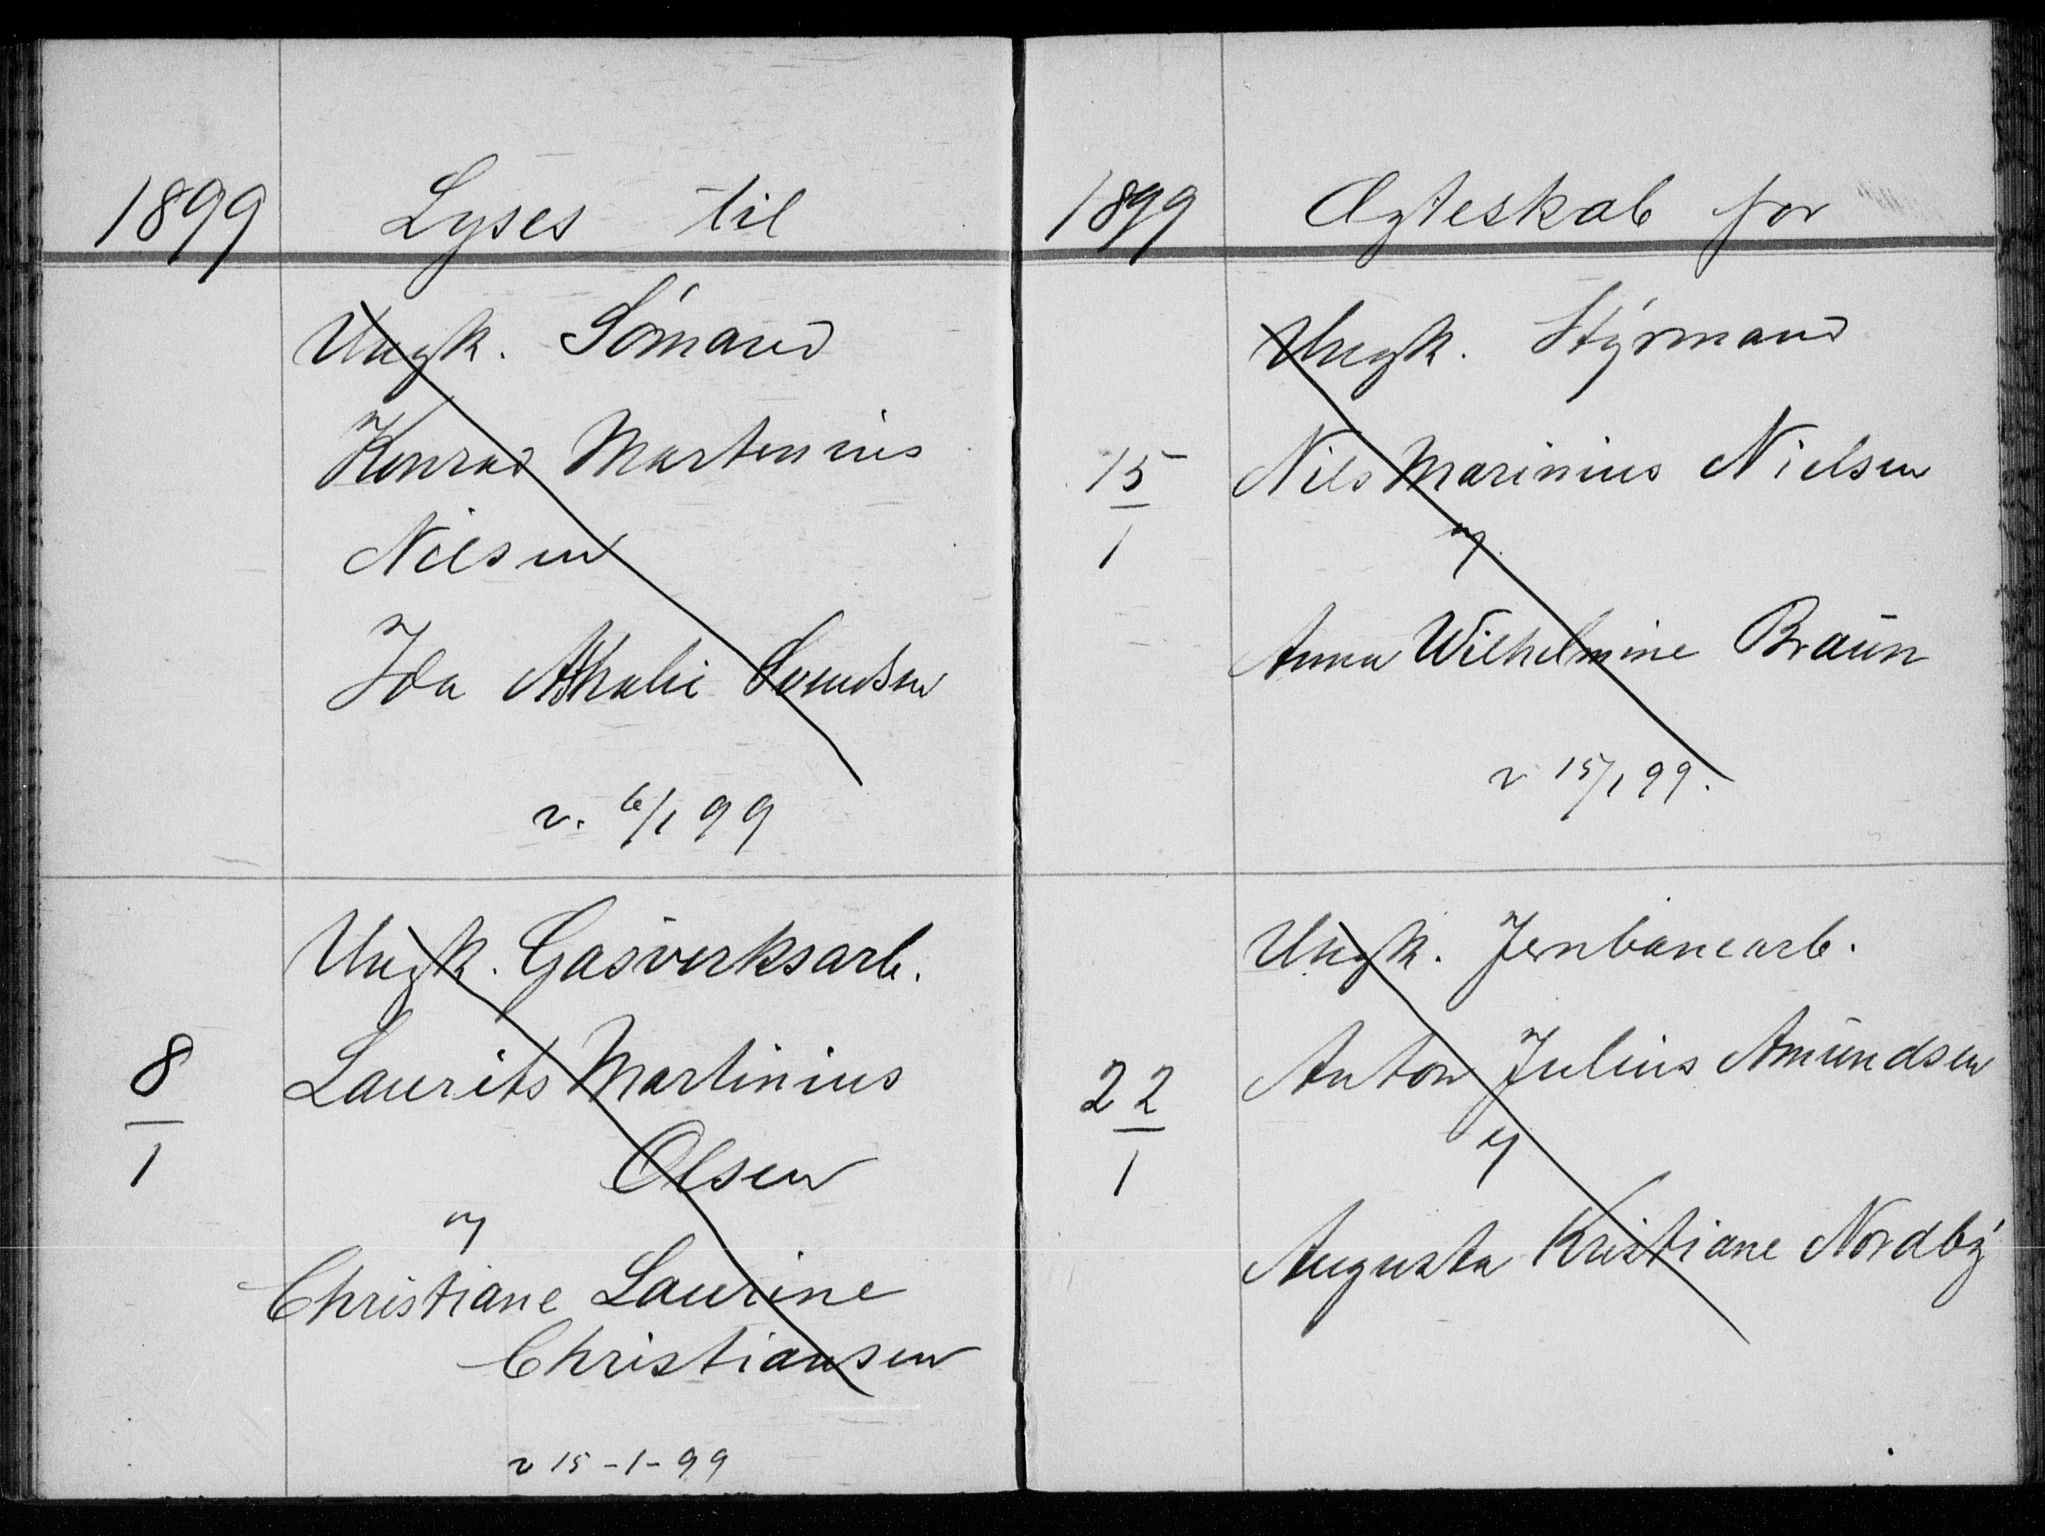 1899 Lyses til
Ungk. Sómand
Konrad Martenius
Nilsen
Ida Athalie Svendsen
v. 6/1 99
Ungk. Gasverksarb.
8
1
Laurits Martinius
Olsen
og
Christiane Laurine
Christiansen
v 15-1-99
1899 Ægteskab for
Ungk. Stýrmand
15
1
Nils Marinius Nielsen
og
Anna Wilhelmine Braun
v 15/1 99.
Ungk. Jernbanearb.
22
1
Anton Julius Amundsen
og
Augusta Kristiane Nordbý